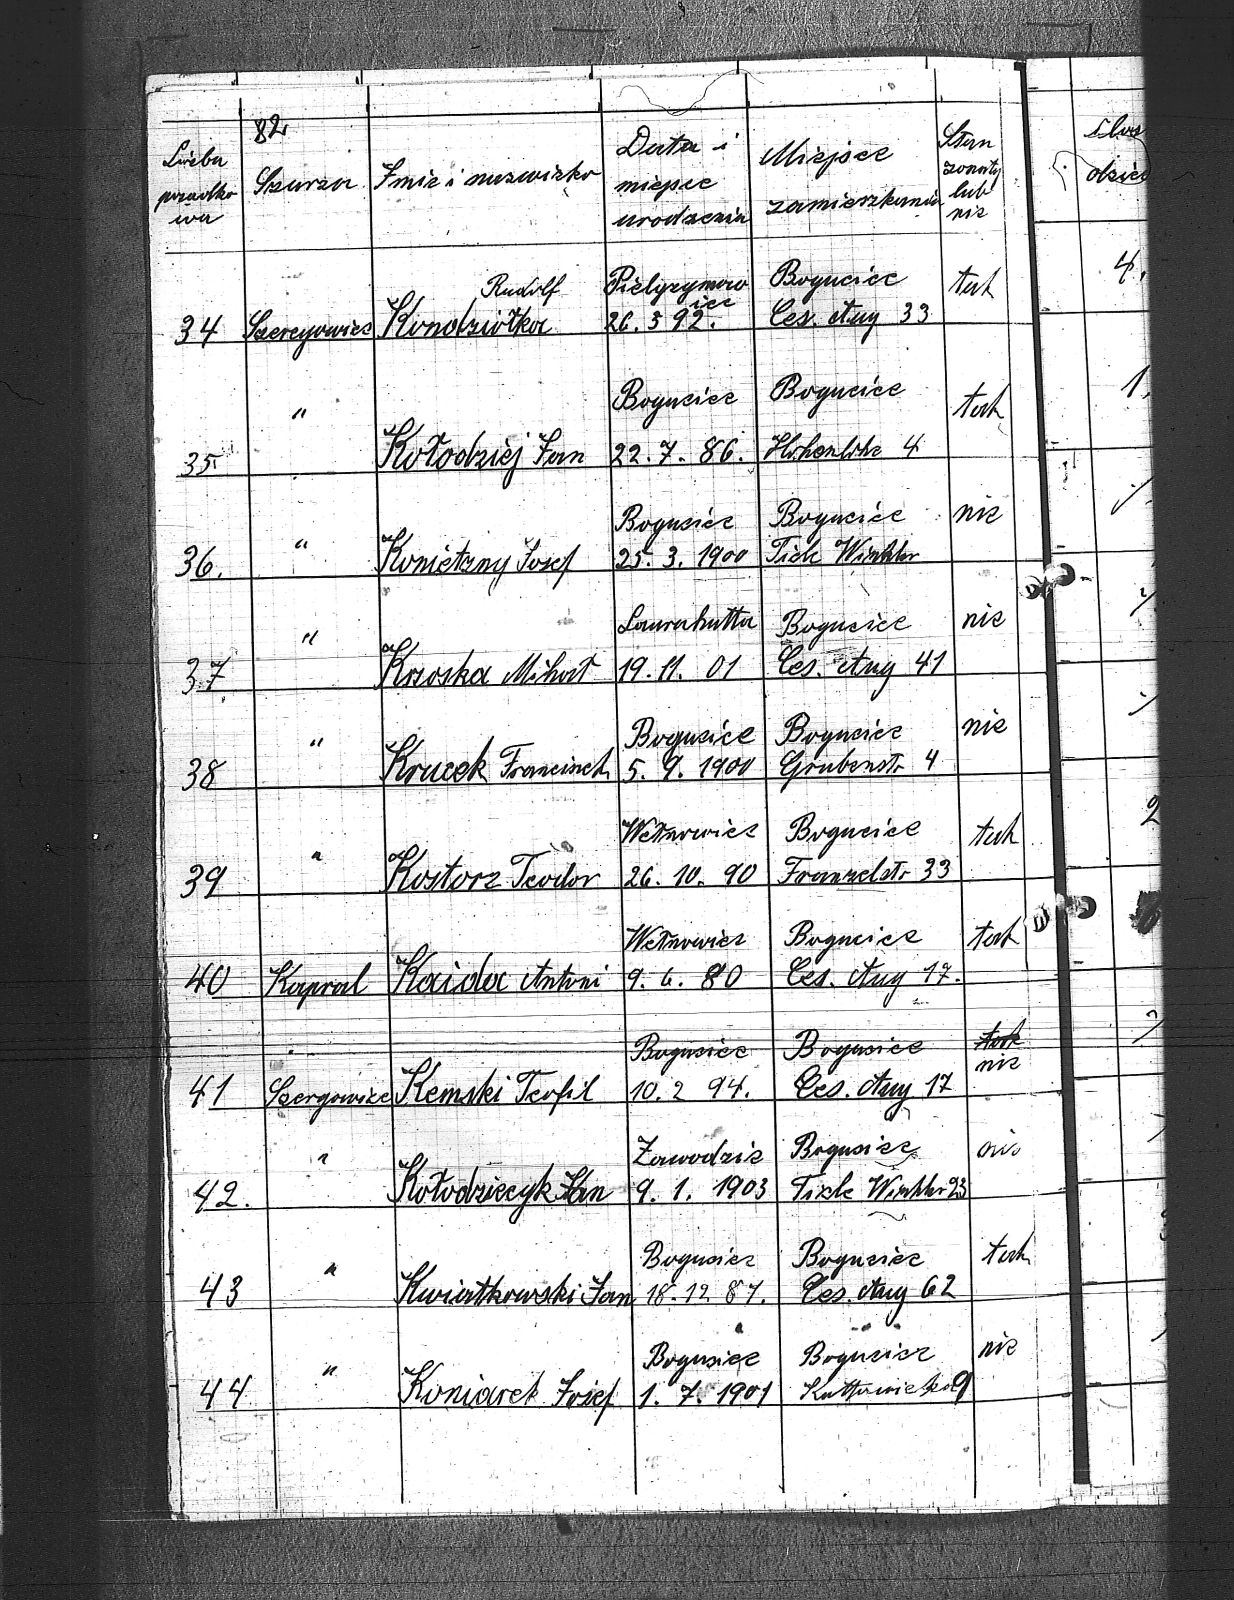 82
Liczba
porzadko
wa
Szarza
Imie i nazwizko
Data i
miejsce
urodzenia
Miejsce
zamierzkania
Stan
zonaty
lub
nie
dzieci
34 Szeregowiec Kondziołka Rudolf Pielgrzymow
ice
26. 5 92. Bogucice
Ces. Aug 33 tak 4.
35 " Kołodziej Jan Bogucice
22. 7. 86. Bogucice
Hohenlohe 4 tak 1.
36. " Konietzny Josef Bogucice
25. 3. 1900 Bogucice
Tiele Winkler nie
37. " Krzoska Mihał Laurahutta
19. 11. 01 Bogucice
Ces. Aug 41 nie
38 " Kruzek Francisek Bogucice
5. 9. 1900 Bogucice
Grubenstr 4 nie
39 " Kostorz Teodor Wełnowiec
26. 10. 90 Bogucice
Franzelstr 33 tak 2
40 Kapral Kaida Antoni Wełnowiec
9. 6. 80 Bogucice
Ces. Aug 17. tak
41 Szergowiec Kemski Teofil Bogucice
10. 2 94. Bogucice
Ces. Aug 17 tak
nie
42. " Kołodziecyk Jan Zawodzie
9. 1. 1903 Bogucice
Tiele Winkler 23 nie
43 " Kwiatkowski Jan Bogucice
18. 12 87. Bogucice
Ces. Aug 62 tak
44 " Koniarek Josef Bogucice
1. 7. 1901 Bogucice
Kattowicka 9 nie